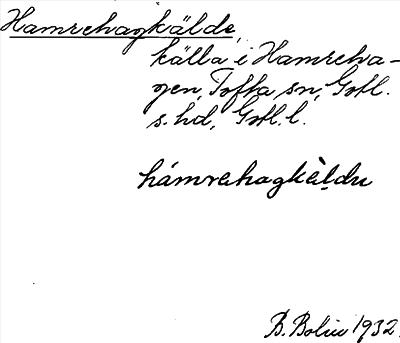 Hamrehagkälde,
källa i Hamreha-
gen, Tofta sn, Gotl.
s. hd, Gotl. l.
hámrehagkὲl̥du
B. Bolin 1932.